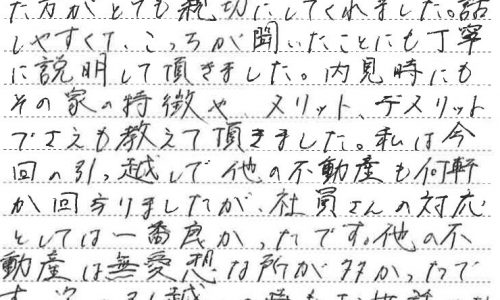 た方がとても親切にしてくれました。話
しやすくて、こっちが聞いたことにも丁寧
に説明して頂きました。内見時にも
その家の特徴や、メリット、デメリット
でさえも教えて頂きました。私は今
回の引っ越しで他の不動産も何軒
か回りましたが、社員さんの対応
としては一番良かったです。他の不
動産は無愛想な所が多かったで